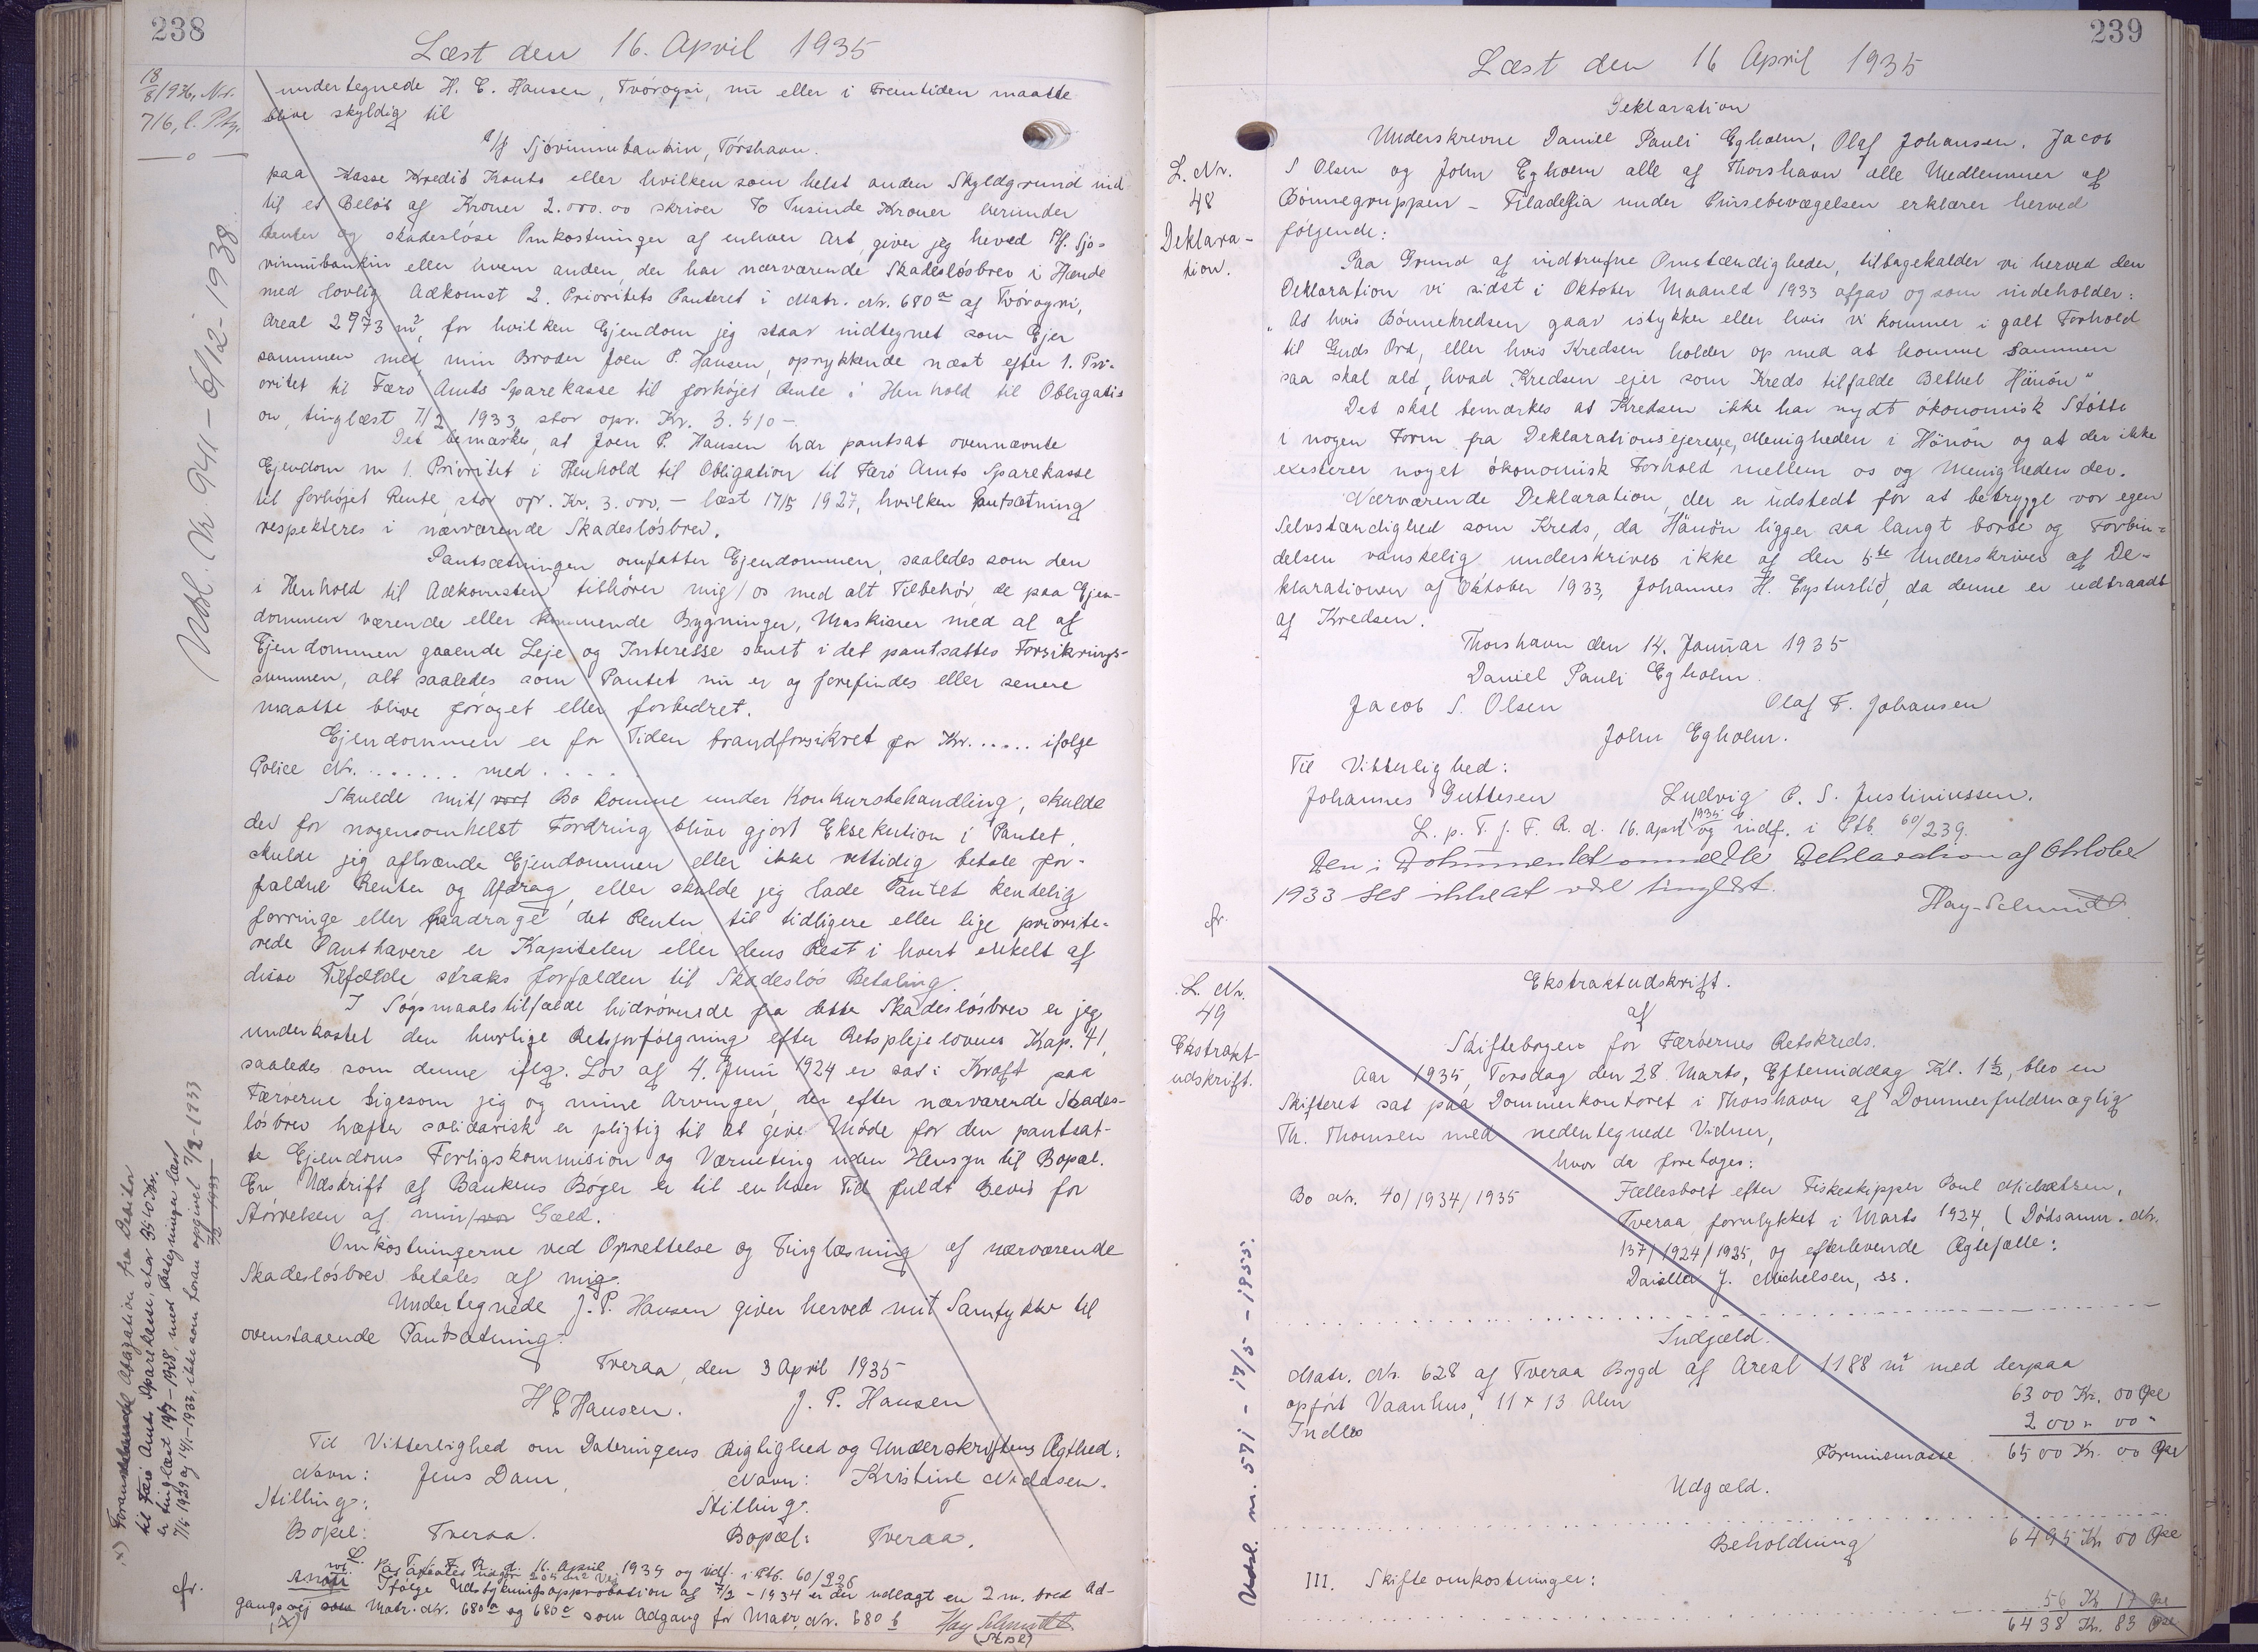 238
Læst den 16. April 1935
18/8 1936, Nr.
716, l. Ptg.
undertegnede H. E. Hansen, Tvöroyri, nu eller i Fremtiden maatte
blive skyldig til
A/S Sjóvinnubankin, Tórshavn.
paa Kasse Kredit Konto eller hvilken som helst anden Skyldgrund ind-
til et Beløb af Kroner 2.000.00 skriver To Tusinde Kroner herunder
Renter og skadesløse Omkostninger af enhver Art, giver jeg heved P/f. Sjó-
vinnubankin eller hvem anden, der har nærværende Skadesløsbrev i Hænde
med lovlig Adkomst 2. Prioritets Panteret i Matr. Nr. 680 a af Tvöroyri,
Areal 2973 m², for hvilken Ejendom jeg staar indtegnet som Ejer
sammen med min Broder Joen P. Hansen, oprykkende næst efter 1. Pri-
oritet til Færø Amts Sparekasse til forhøjet Rente i Henhold til Obligati-
on, tinglæst 7/2 1933, stor opr. Kr. 3.510-
Det bemærkes, at Joen P. Hansen har pantsat ovennævnte
Ejendom m 1. Prioritet i Henhold til Obligation til Færø Amts Sparekasse
til forhøjet Rente, stor opr. Kr. 3.000,- læst 17/5 1927, hvilken Pantsætning
respekteres i nærværende Skadesløsbrev.
Pantsætningen omfatter Ejendommen, saaledes som den
i Henhold til Adkomsten tilhører mig/os med alt Tilbehør, de paa Ejen-
dommen værende eller kommende Bygninger, Maskiner med al af
Ejendommen gaaende Leje og Interesse samt i det pantsattes Forsikrings-
summen, alt saaledes som Pantet nu er og forefindes eller senere
maatte blive forøget eller forbedret.
Ejendommen er for Tiden brandforsikret for Kr...... ifølge
Police Nr. ....... med .....
Skulde mit/vort Bo komme under Konkursbehandling, skulde
der for nogensomhelst Fordring blive gjort Eksekution i Pantet,
skulde jeg afhænde Ejendommen eller ikke rettidig betale for-
faldne Renter og Afdrag, eller skulde jeg lade Pantet kendelig
forringe eller paadrage det Renter til tidligere eller lige priorite-
rede Panthavere er Kapitalen eller dens Rest i hvert enkelt af
disse Tilfælde straks forfalden til Skadesløs Betaling.
I Søgsmaalstilfælde hidrørende fra dette Skadesløsbrev er jeg
underkastet den hurtige Retsforfølgning efter Retsplejelovens Kap. 41,
saaledes som denne iflg. Lov af 4. Juni 1924 er sat i Kraft paa
Færøerne ligesom jeg og mine Arvinger, der efter nærværende Skades-
løsbrev hæfter solidarisk er pligtig til at give Møde for den pantsat-
te Ejendoms Forligskommision og Værneting uden Hensyn til Bopæl.
En Udskrift af Bankens Bøger er til enhver Tid fuldt Bevis for
Størrelsen af min/vor Gæld.
Omkostningerne ved Oprettelse og Tinglæsning af nærværende
Skadesløsbrev betales af mig.
Undertegnede J. P. Hansen giver herved mit Samtykke til
ovenstaaende Pantsætning.
Tveraa, den 3 April 1935
H E Hansen. J. P. Hansen
Til Vitterlighed om Dateringens Rigtighed og Underskriftens Ægthed:
Navn: Jens Dam, Navn: Kristine
Stilling: Stilling:
Bopæl: Tveraa. Bopæl: Tveraa.
16. April 1935 og indf. i Ptb. 60/236
Anm: Ifølge Udstykningsapprobation af 7/2 - 1934 er der udlagt en 2 m. bred Ad-
gangsvej som Matr. Nr. 680 a og 680 c som Adgang for Matr. Nr. 680 b
Hay Schmidt
(X)
Udsl. Nr. 941 - 6/12 - 1938.
X) Foranstaaende Obligation fra Debitor
til Færø Amts Sparekasse, stor 3510 Kr.
7/1 1929 og 14/1-1933, ikke som foran opgivet 7/2-1933
fr.
239
Læst den 16 April 1935
L. Nr.
48
Deklara-
tion.
Deklaration
Underskrevne Daniel Pauli Egholm, Olaf Johansen, Jacob
S Olsen og John Egholm alle af Thorshavn alle Medlemmer af
Bønnegruppen - Filadelfia under Pinsebevægelsen erklærer herved
følgende:
Paa Grund af indtrufne Omstændigheder, tilbagekalder vi herved den
Deklaration vi sidst i Oktober Maaned 1933 afgav og som indeholder:
"At hvis Bønnekredsen gaar istykker eller hvis vi kommer i galt Forhold
til Guds Ord, eller hvis Kredsen holder op med at komme sammen
saa skal alt, hvad Kredsen ejer som Kreds tilfalde Bethel Hänön"
Det skal bemærkes at Kredsen ikke har nydt økonomisk Støtte
i nogen Form fra Deklarationsejerne, Menigheden i Hönön og at der ikke
existerer noget økonomisk Forhold mellem os og Menigheden der.
Nærværende Deklaration, der er udstedt for at betrygge vor egen
Selvstændighed som Kreds, da Hänön ligger saa langt borte og Forbin-
delsen vanskelig underskrives ikke af den 5te Underskriver af De-
klarationen af Oktober 1933, Johannes H. Eysturlid, da denne er udtraadt
af Kredsen.
Thorshavn den 14. Januar 1935
Daniel Pauli Egholm.
Jacob S. Olsen Olaf F. Johansen
John Egholm.
Til Vitterlighed:
Johannes Guttesen Ludvig P. S. Justiniussen.
L. p. T. f. F. R. d. 16. April 1935 og indf. i Ptb. 60/239.
Den i Dokumentet ommeldte Deklaration af Oktober
1933 ses ikke at være tinglæst.
Hay-Schmidt
fr.
L. Nr.
49
Ekstrakt-
udskrift.
Ekstraktudskrift.
af
Skiftebogen for Færøernes Retskreds.
Aar 1935, Torsdag den 28 Marts, Eftermiddag Kl. 1½, blev en
Skifteret sat paa Dommerkontoret i Thorshavn af Dommerfuldmægtig
Th. Thomsen med nedentegnede Vidner,
hvor da foretoges:
Bo Nr. 40/1934/1935 Fællesboet efter Fiskeskipper Poul Michelsen,
Tveraa, forulykket i Marts 1924, (Dødsanm. Nr.
137/1924/1925, og efterlevende Ægtefælle:
J. Michelsen, ss.
Indgæld.
Matr. Nr. 628 af Tveraa Bygd af Areal 1188 m² med derpaa
opført Vaanhus, 11 x 13 Alen 6300 Kr. 00 Øre
Indbo 200 " 00 "
Formuemasse 6500 Kr. 00 Øre
Udgæld.
Beholdning 6495 Kr 00 Øre
III. Skifteomkostninger:
56 Kr. 17 Øre
6438 Kr. 83 Øre
Udsl. nr. 571 - 17/5 - 1955.